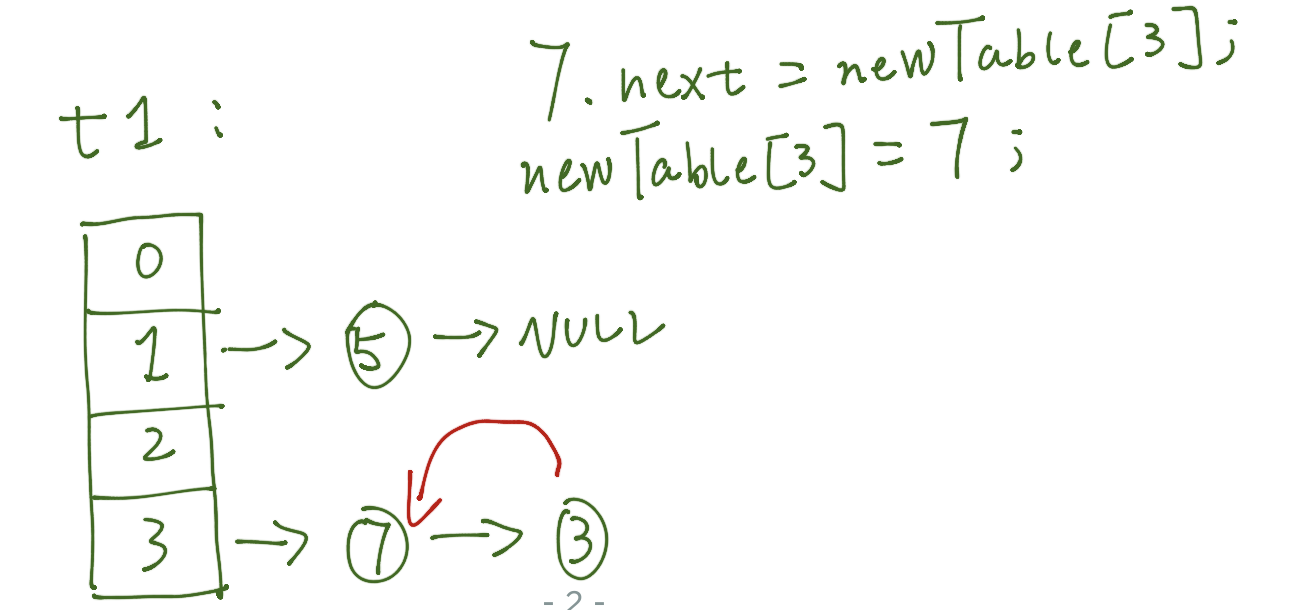 7.next = newTable[3];
t1 :
newTable[3] = 7 ;
0
1 → 5 → NULL
2
3 → 7 → 3
- 2 -